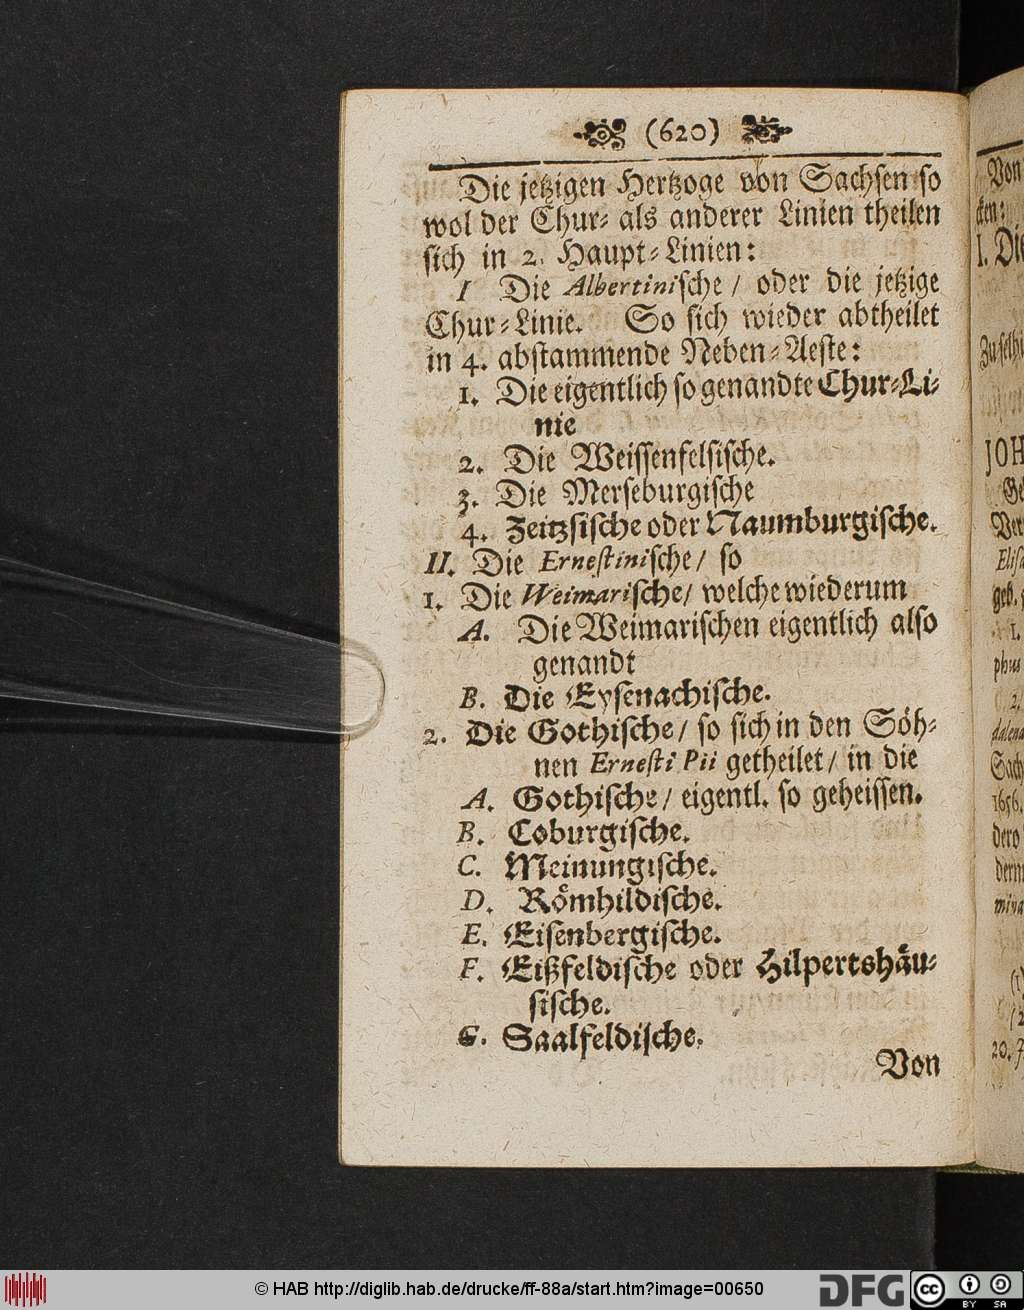 (620)
Die jetzigen Hertzoge von Sachsen so
wol der Chur- als anderer Linien theilen
sich in 2. Haupt-Linien:
I Die Albertinische / oder die jetzige
Chur-Linie. So sich wieder abtheilet
in 4. abstammende Neben-Aeste:
1. Die eigentlich so genandte Chur-Li-
nie
2. Die Weissenfelsische.
3. Die Merseburgische
4. Zeitzsische oder Naumburgische.
II. Die Ernestinische / so
1. Die Weimarische / welche wiederum
A. Die Weimarischen eigentlich also
genandt
B. Die Eysenachische.
2. Die Gothische / so sich in den Söh-
nen Ernesti Pii getheilet / in die
A. Gothische / eigentl. so geheissen.
B. Coburgische.
C. Meinungische.
D. Römhildische.
E. Eisenbergische.
F. Eißfeldische oder Hilpertshäu-
sische.
G. Saalfeldische.
Von
Von
cken:
I. Die
JOH
Ge
Ver
geb.
1.
phus
2.
Sach
1656.
dero
20.
© HAB http://diglib.hab.de/drucke/ff-88a/start.htm?image=00650
DFG
CC
BY SA